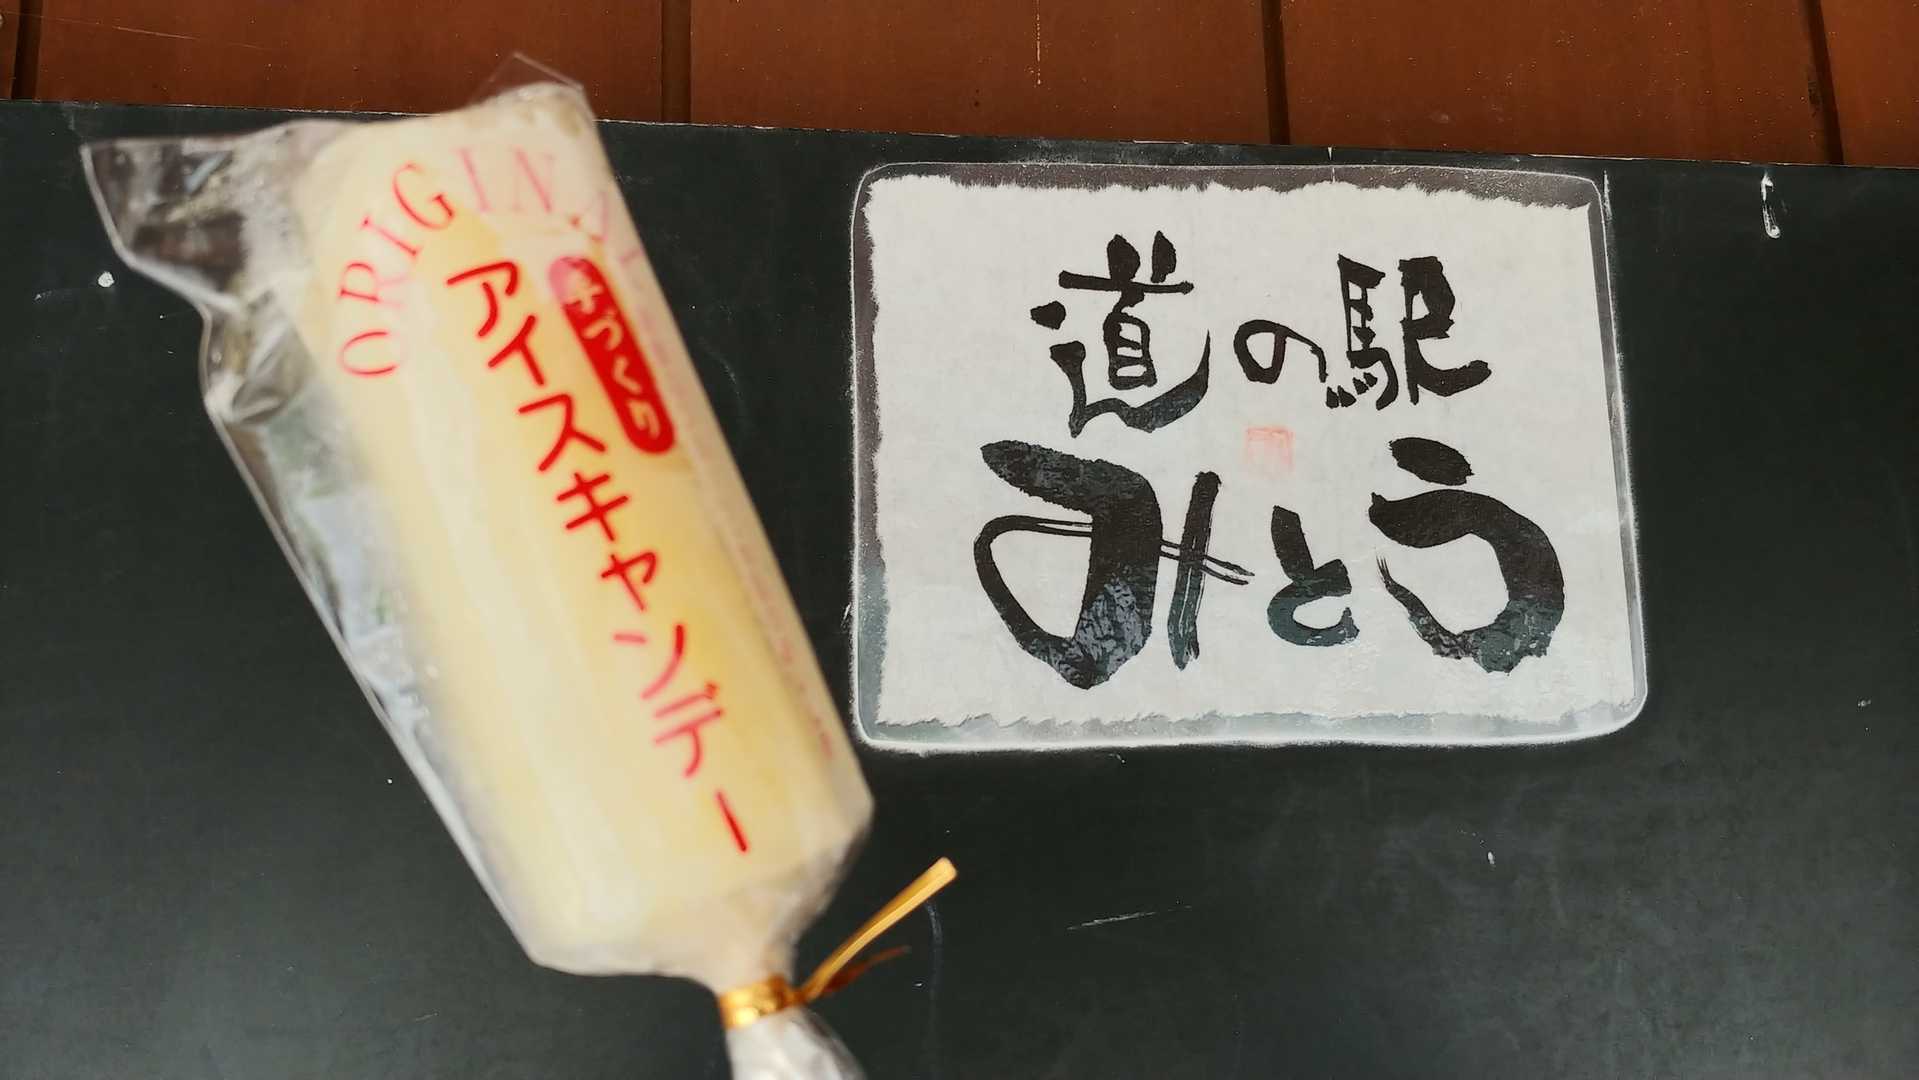 ORIGINAL
手づくり
アイスキャンデー
道の駅
みとう